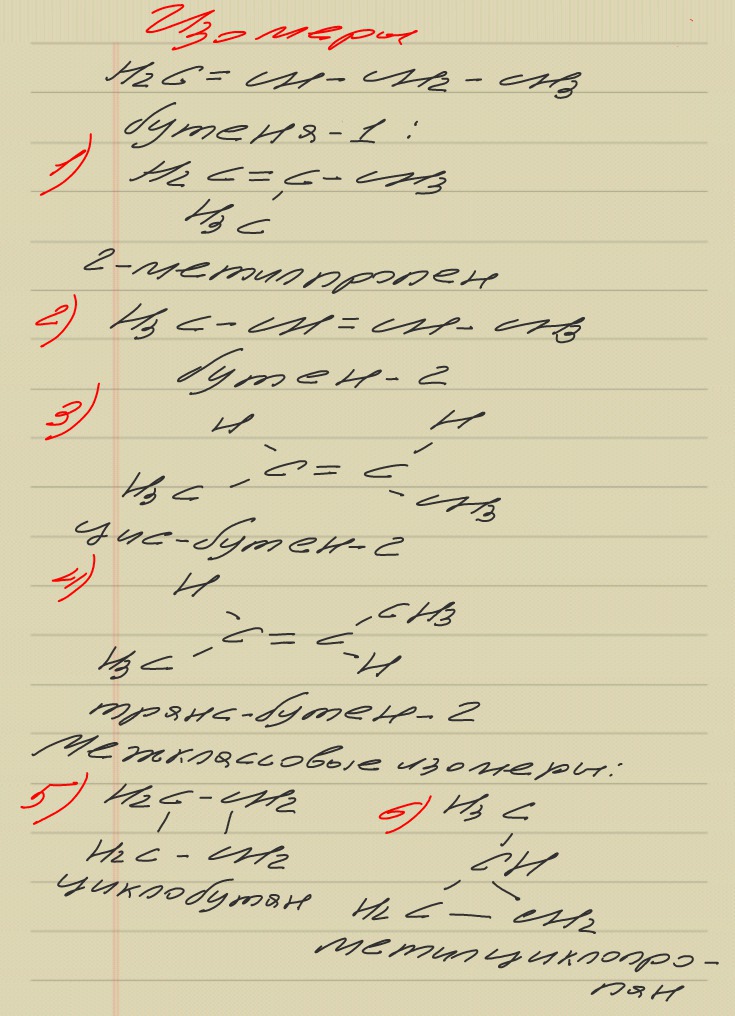 Изомеры
H2C=CH-CH2-CH3
бутена-1:
1) H2C=C-CH3
H3C
2-метилпропен
2) H3C-CH=CH-CH3
бутен-2
3) H H
C=C
H3C CH3
цис-бутен-2
4) H CH3
C=C
H3C H
транс-бутен-2
Межклассовые изомеры:
5) H2C-CH2 6) H3C
H2C-CH2 CH
циклобутан H2C—CH2
метилциклопро-
пан